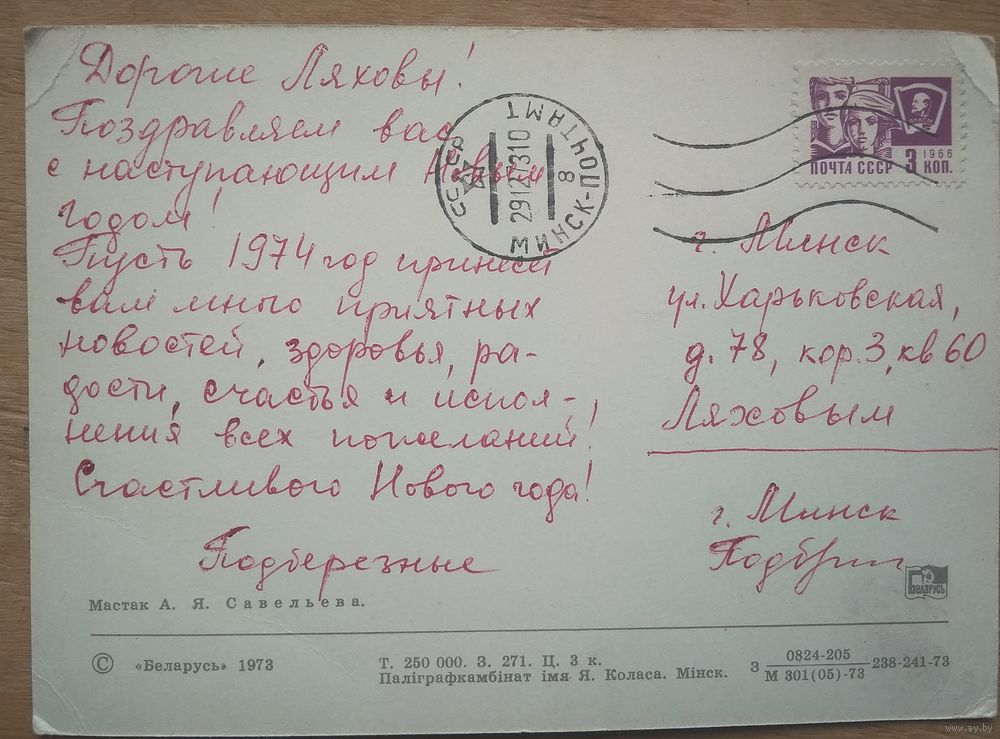 Дорогие Ляховы!
Поздравляем вас
с наступающим Новым
годом!
Пусть 1974 год принесет
вам много приятных
новостей, здоровья, ра-
дости, счастья и испол-
нения всех пожеланий!
Счастливого Нового года!
Подберезные
МИНСК-ПОЧТАМТ
8
291273 10
СССР
ПОЧТА СССР
1966
3 КОП.
ВЛКСМ
г. Минск
ул. Харьковская,
д. 78, кор. 3, кв 60
Ляховым
г. Минск
БЕЛАРУСЬ
Мастак А. Я. Савельева.
© «Беларусь» 1973
Т. 250 000. З. 271. Ц. 3 к.
Паліграфкамбінат імя Я. Коласа. Мінск.
З 0824-205
М 301(05)-73
238-241-73
www.ay.by